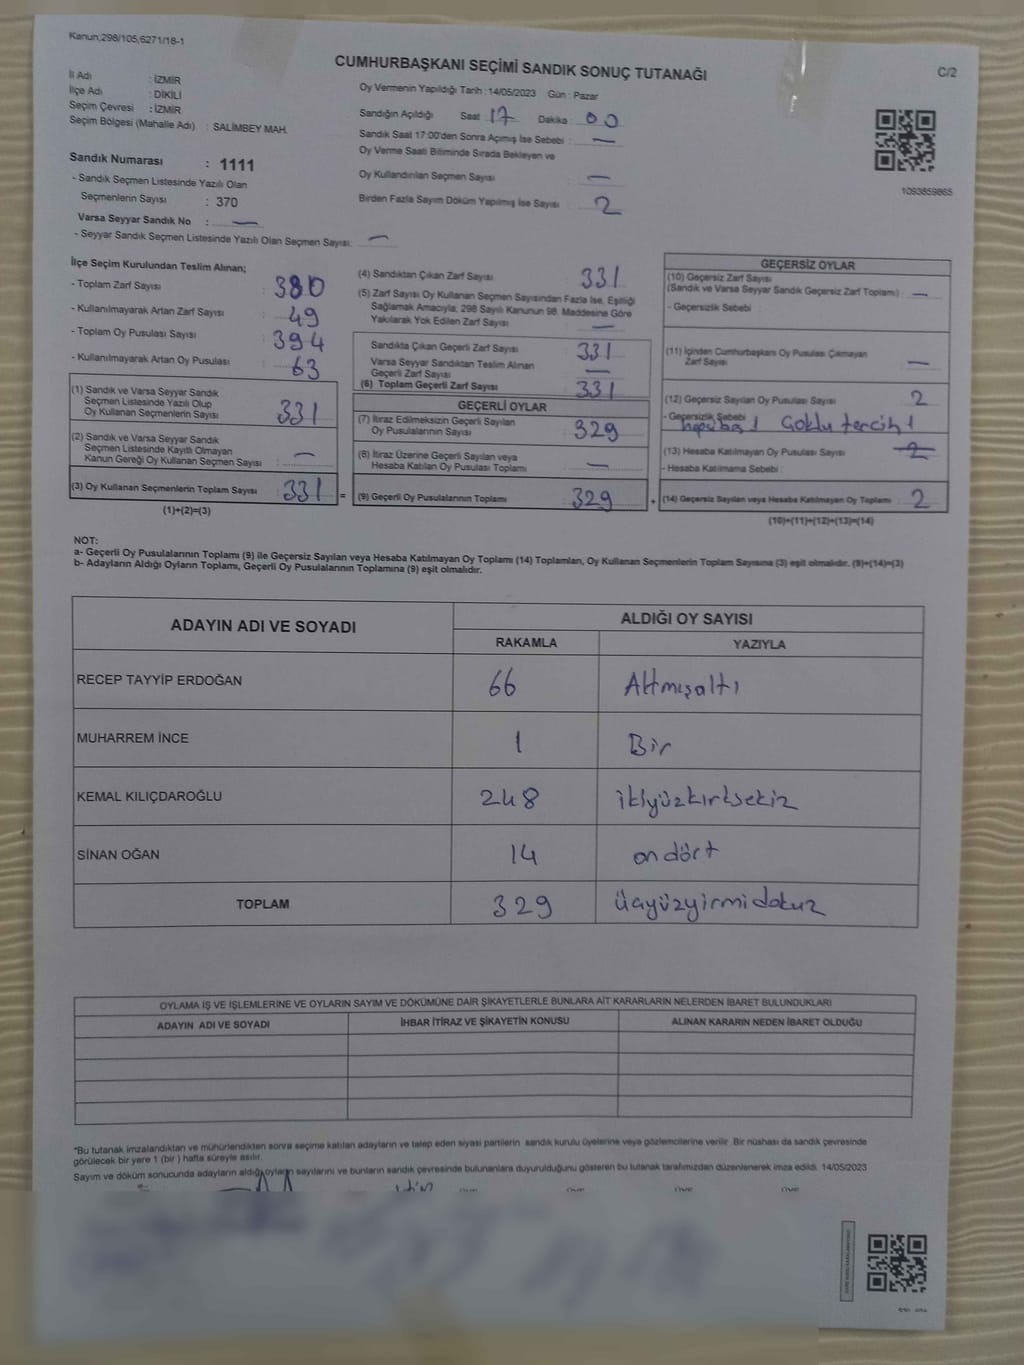 Kanun,298/105,6271/18-1
C/2
CUMHURBAŞKANI SEÇİMİ SANDIK SONUÇ TUTANAĞI
İl Adı : İZMİR
İlçe Adı : DİKİLİ
Seçim Çevresi : İZMİR
Seçim Bölgesi (Mahalle Adı) : SALİMBEY MAH.
Sandık Numarası : 1111
- Sandık Seçmen Listesinde Yazılı Olan
Seçmenlerin Sayısı : 370
Varsa Seyyar Sandık No : —
- Seyyar Sandık Seçmen Listesinde Yazılı Olan Seçmen Sayısı: —
Oy Vermenin Yapıldığı Tarih : 14/05/2023 Gün : Pazar
Sandığın Açıldığı Saat 17 Dakika 00
Sandık Saat 17:00'den Sonra Açımış İse Sebebi : —
Oy Verme Saati Bitiminde Sırada Bekleyen ve
Oy Kullandırılan Seçmen Sayısı —
Birden Fazla Sayım Döküm Yapılmış İse Sayısı 2
1093859865
İlçe Seçim Kurulundan Teslim Alınan;
- Toplam Zarf Sayısı : 380
- Kullanılmayarak Artan Zarf Sayısı : 49
- Toplam Oy Pusulası Sayısı : 394
- Kullanılmayarak Artan Oy Pusulası : 63
(1) Sandık ve Varsa Seyyar Sandık
Seçmen Listesinde Yazılı Olup
Oy Kullanan Seçmenlerin Sayısı : 331
(2) Sandık ve Varsa Seyyar Sandık
Seçmen Listesinde Kayıtlı Olmayan
Kanun Gereği Oy Kullanan Seçmen Sayısı : —
(3) Oy Kullanan Seçmenlerin Toplam Sayısı : 331 =
(1)+(2)=(3)
(4) Sandıktan Çıkan Zarf Sayısı 331
(5) Zarf Sayısı Oy Kullanan Seçmen Sayısından Fazla İse, Eşitliği
Sağlamak Amacıyla, 298 Sayılı Kanunun 98. Maddesine Göre
Yakılarak Yok Edilen Zarf Sayısı : —
Sandıkta Çıkan Geçerli Zarf Sayısı : 331
Varsa Seyyar Sandıktan Teslim Alınan
Geçerli Zarf Sayısı : —
(6) Toplam Geçerli Zarf Sayısı : 331
GEÇERLİ OYLAR
(7) İtiraz Edilmeksizin Geçerli Sayılan
Oy Pusulalarının Sayısı : 329
(8) İtiraz Üzerine Geçerli Sayılan veya
Hesaba Katılan Oy Pusulası Toplamı : —
(9) Geçerli Oy Pusulalarının Toplamı : 329 +
GEÇERSİZ OYLAR
(10) Geçersiz Zarf Sayısı
(Sandık ve Varsa Seyyar Sandık Geçersiz Zarf Toplamı) : —
- Geçersizlik Sebebi :
(11) İçinden Cumhurbaşkanı Oy Pusulası Çıkmayan
Zarf Sayısı —
(12) Geçersiz Sayılan Oy Pusulası Sayısı : 2
- Geçersizlik Sebebi 1 Çoklu tercih 1
(13) Hesaba Katılmayan Oy Pusulası Sayısı 2
- Hesaba Katılmama Sebebi :
(14) Geçersiz Sayılan veya Hesaba Katılmayan Oy Toplamı : 2
(10)+(11)+(12)+(13)=(14)
NOT:
a- Geçerli Oy Pusulalarının Toplamı (9) ile Geçersiz Sayılan veya Hesaba Katılmayan Oy Toplamı (14) Toplamları, Oy Kullanan Seçmenlerin Toplam Sayısına (3) eşit olmalıdır. (9)+(14)=(3)
b- Adayların Aldığı Oyların Toplamı, Geçerli Oy Pusulalarının Toplamına (9) eşit olmalıdır.
ADAYIN ADI VE SOYADI
ALDIĞI OY SAYISI
RAKAMLA YAZIYLA
RECEP TAYYİP ERDOĞAN 66 Altmışaltı
MUHARREM İNCE 1 Bir
KEMAL KILIÇDAROĞLU 248 ikiyüzkırksekiz
SİNAN OĞAN 14 on dört
TOPLAM 329 Üçyüzyirmidokuz
OYLAMA İŞ VE İŞLEMLERİNE VE OYLARIN SAYIM VE DÖKÜMÜNE DAİR ŞİKAYETLERLE BUNLARA AİT KARARLARIN NELERDEN İBARET BULUNDUKLARI
ADAYIN ADI VE SOYADI İHBAR İTİRAZ VE ŞİKAYETİN KONUSU ALINAN KARARIN NEDEN İBARET OLDUĞU
*Bu tutanak imzalandıktan ve mühürlendikten sonra seçime katılan adayların ve talep eden siyasi partilerin sandık kurulu üyelerine veya gözlemcilerine verilir. Bir nüshası da sandık çevresinde
görülecek bir yere 1 (bir) hafta süreyle asılır.
Sayım ve döküm sonucunda adayların aldığı oyların sayılarını ve bunların sandık çevresinde bulunanlara duyurulduğunu gösteren bu tutanak tarafımızdan düzenlenerek imza edildi. 14/05/2023